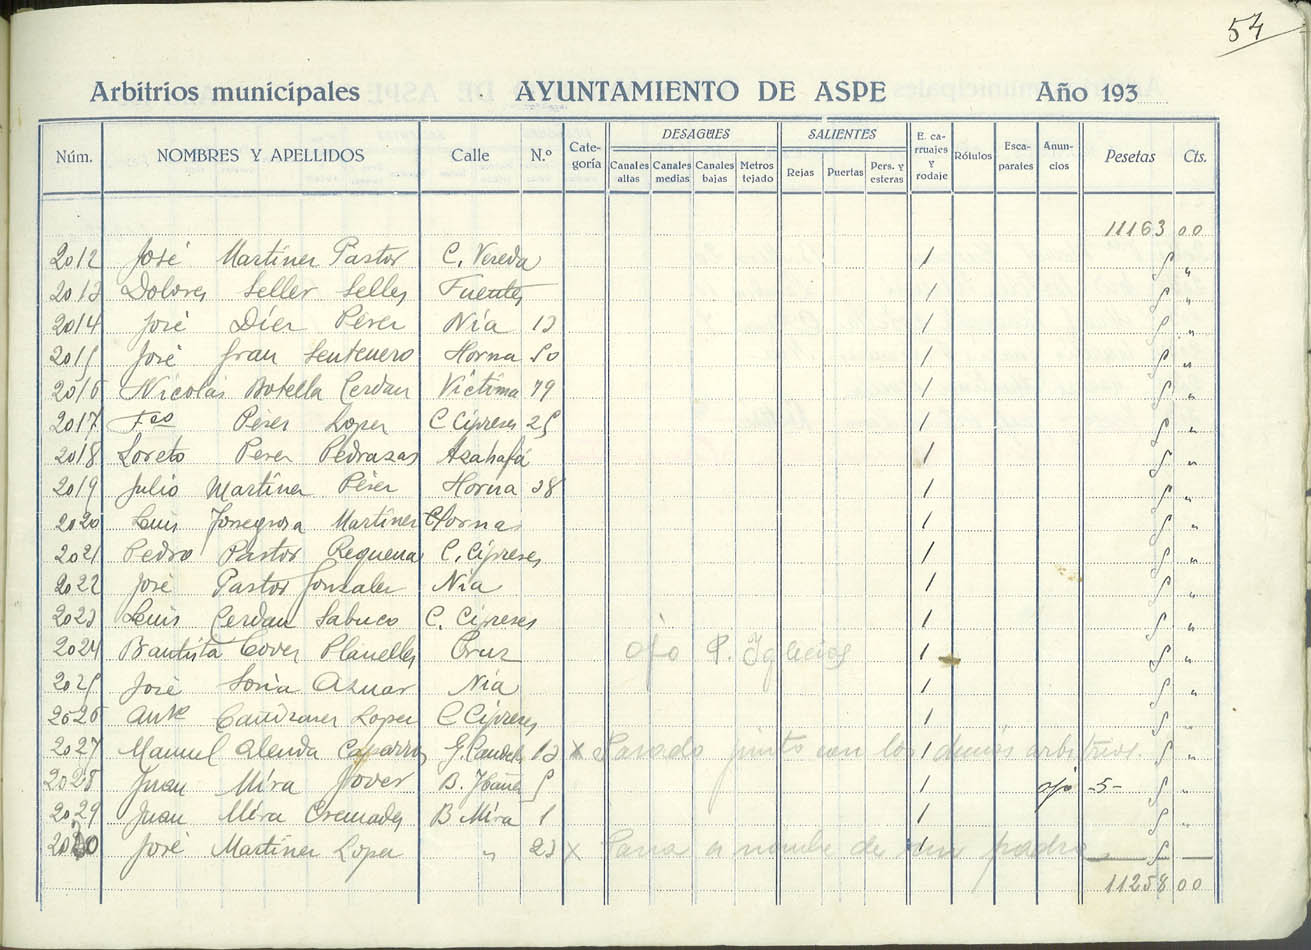 54
Arbitrios municipales AYUNTAMIENTO DE ASPE Año 193
Núm. NOMBRES Y APELLIDOS Calle N.º Cate-goría DESAGÜES Canales altas Canales medias Canales bajas Metros tejado SALIENTES Rejas Puertas Pers. y esteras E. ca-rruajes y rodaje Rótulos Esca-parates Anun-cios Pesetas Cts.
11163 00
2012 José Martinez Pastor C. Vereda 1 5 "
2013 Dolores Seller Selles Fuentes 1 5 "
2014 José Diez Pérez Nía 13 1 5 "
2015 José Gran Sentenero Horna 50 1 5 "
2016 Nicolás Botella Cerdan Victima 79 1 5 "
2017 Fco Pérez Lopez C Cipreses 25 1 5 "
2018 Loreto Perez Pedrazas Azahafá 1 5 "
2019 Julio Martinez Pérez Horna 38 1 5 "
2020 Luis Torregrosa Martinez Hornas 1 5 "
2021 Pedro Pastor Requena C. Cipreses 1 5 "
2022 José Pastor Gonzalez Nía 1 5 "
2023 Luis Cerdan Sabuco C. Cipreses 1 5 "
2024 Bautista Cover Planelles Cruz ojo P. Iglecias 1 5 "
2025 José Soria Aznar Nía 1 5 "
2026 Antº Cañizares Lopez C Cipreses 1 5 "
2027 Manuel Alenda Caparros G. Candela 13 x Pasado junto con los demás arbitrios. 1 5 "
2028 Juan Mira Jover B. Ibañez 5 1 ojo -5- 5 "
2029 Juan Mira Cremades B Mira 1 1 5 "
2030 José Martinez Lopez " 23 x Pasa a nombre de su padre 1 5
11258 00